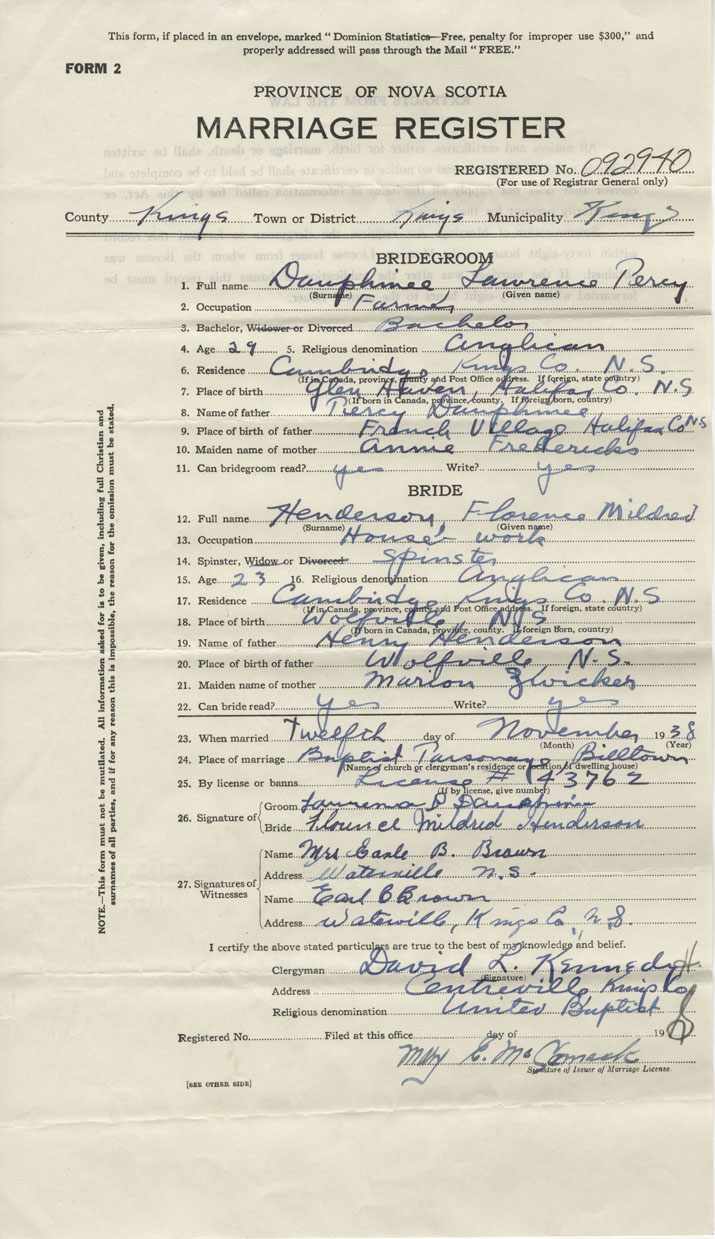 This form, if placed in an envelope, marked "Dominion Statistics—Free, penalty for improper use $300," and
properly addressed will pass through the Mail "FREE."
FORM 2
PROVINCE OF NOVA SCOTIA
MARRIAGE REGISTER
REGISTERED No. 092940
(For use of Registrar General only)
County Kings Town or District Kings Municipality Kings
BRIDEGROOM
1. Full name Dauphinee Lawrence Percy
(Surname) (Given name)
2. Occupation Farmer
3. Bachelor, Widower or Divorced Bachelor
4. Age 29 5. Religious denomination Anglican
6. Residence Cambridge Kings Co. N.S.
(If in Canada, province, county and Post Office address. If foreign, state country)
7. Place of birth Glen Haven, Halifax Co. N.S
(If born in Canada, province, county. If foreign born, country)
8. Name of father Percy Dauphinee
9. Place of birth of father French Village Halifax Co NS
10. Maiden name of mother Annie Fredericks
11. Can bridegroom read? yes Write? yes
BRIDE
12. Full name Henderson, Florence Mildred
(Surname) (Given name)
13. Occupation House work
14. Spinster, Widow or Divorced Spinster
15. Age 23 16. Religious denomination Anglican
17. Residence Cambridge Kings Co. N.S
(If in Canada, province, county and Post Office address. If foreign, state country)
18. Place of birth Wolfville N.S
(If born in Canada, province, county. If foreign born, country)
19. Name of father Henry Henderson
20. Place of birth of father Wolfville N.S.
21. Maiden name of mother Marion Zwicker
22. Can bride read? yes Write? yes
23. When married Twelfth day of November 1938
(Month) (Year)
24. Place of marriage Baptist Parsonage Billtown
(Name of church or clergyman's residence or location of dwelling house)
25. By license or banns License # 143762
(If by license, give number)
26. Signature of
Groom Lawrence P Dauphinee
Bride Florence Mildred Henderson
27. Signatures of Witnesses
Name Mrs Earle B. Brown
Address Waterville N.S.
Name Earl B Brown
Address Waterville, Kings Co, N.S.
I certify the above stated particulars are true to the best of my knowledge and belief.
Clergyman David L. Kennedy
(Signature)
Address Centreville Kings Co
Religious denomination United Baptist
Registered No. Filed at this office day of 19
E. McCormack
Signature of Issuer of Marriage License
[SEE OTHER SIDE]
NOTE.—This form must not be mutilated. All information asked for is to be given, including full Christian and
surnames of all parties, and if for any reason this is impossible, the reason for the omission must be stated.